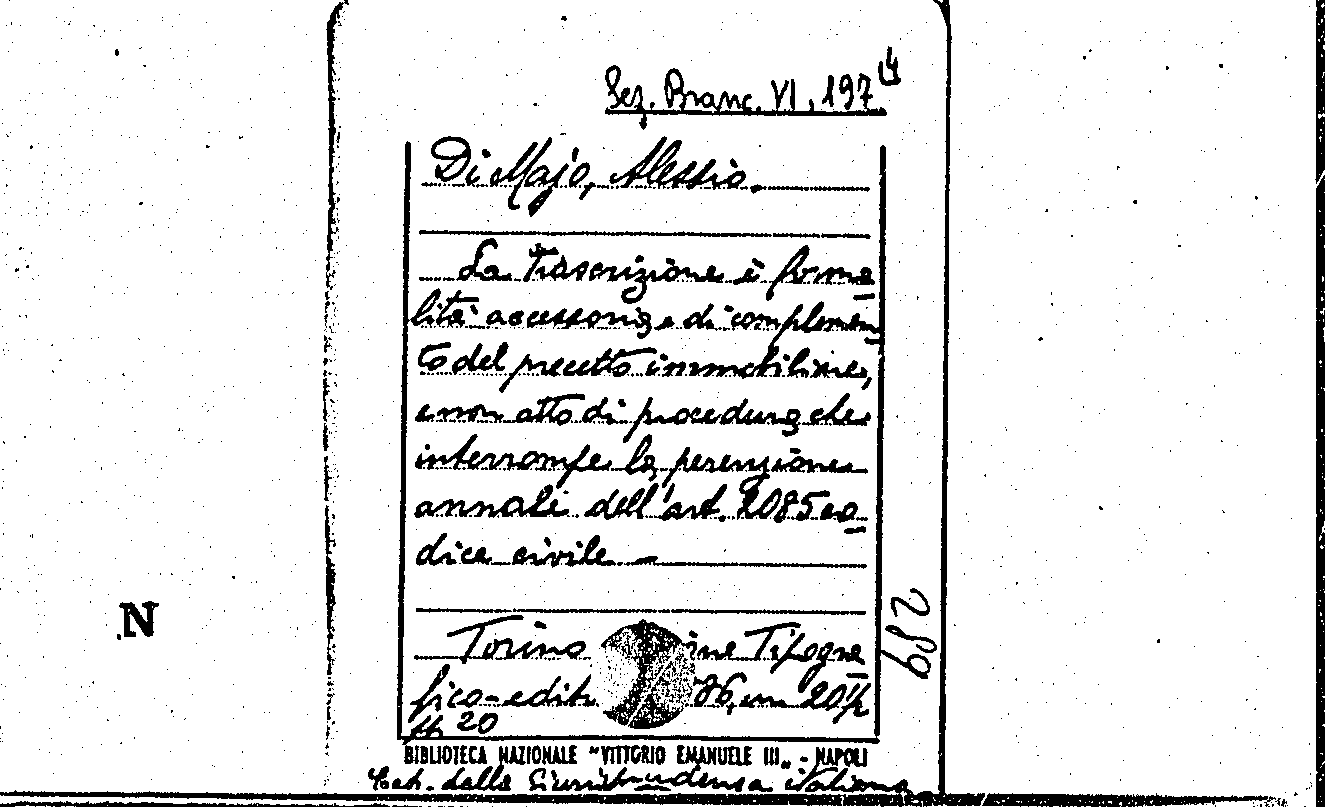 Sez. Branc. VI, 197
Di Majo, Alessio.
La trascrizione è forma
lità accessoria e di complemen
to del precetto immobiliare,
e non atto di procedura che
interrompe la perenzione
annale dell'art. 2085 co
dice civile -
Torino Tipogra
fico-edit 86, in 20
20
BIBLIOTECA NAZIONALE "VITTORIO EMANUELE III" - NAPOLI
dalla Giurisprudenza italiana
N
289